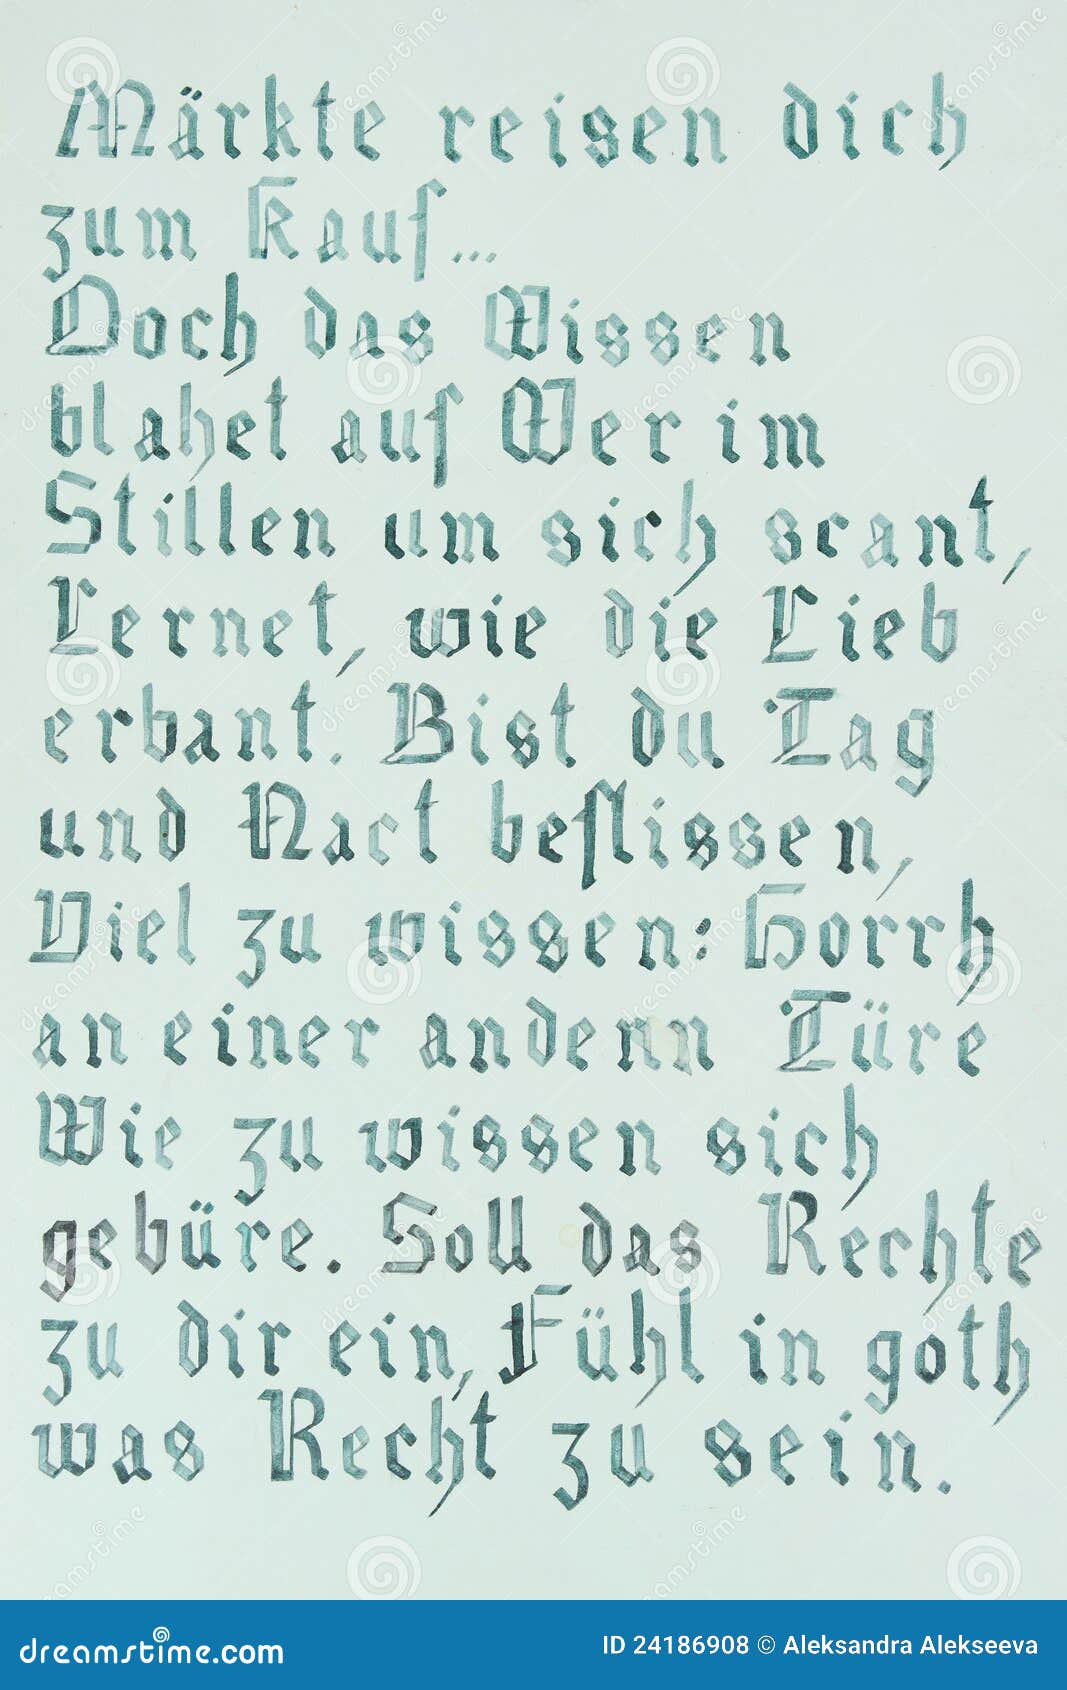 Märkte reisen dich
zum Kauf...
Doch das Wissen
blahet auf Wer im
Stillen um sich scant,
Lernet, wie die Lieb
erbant. Bist du Tag
und Nact beflissen,
Viel zu wissen: Horrh
an einer andenn Türe
Wie zu wissen sich
gebüre. Soll das Rechte
zu dir ein, Fühl in goth
was Recht zu sein.
dreamstime.com
ID 24186908 © Aleksandra Alekseeva